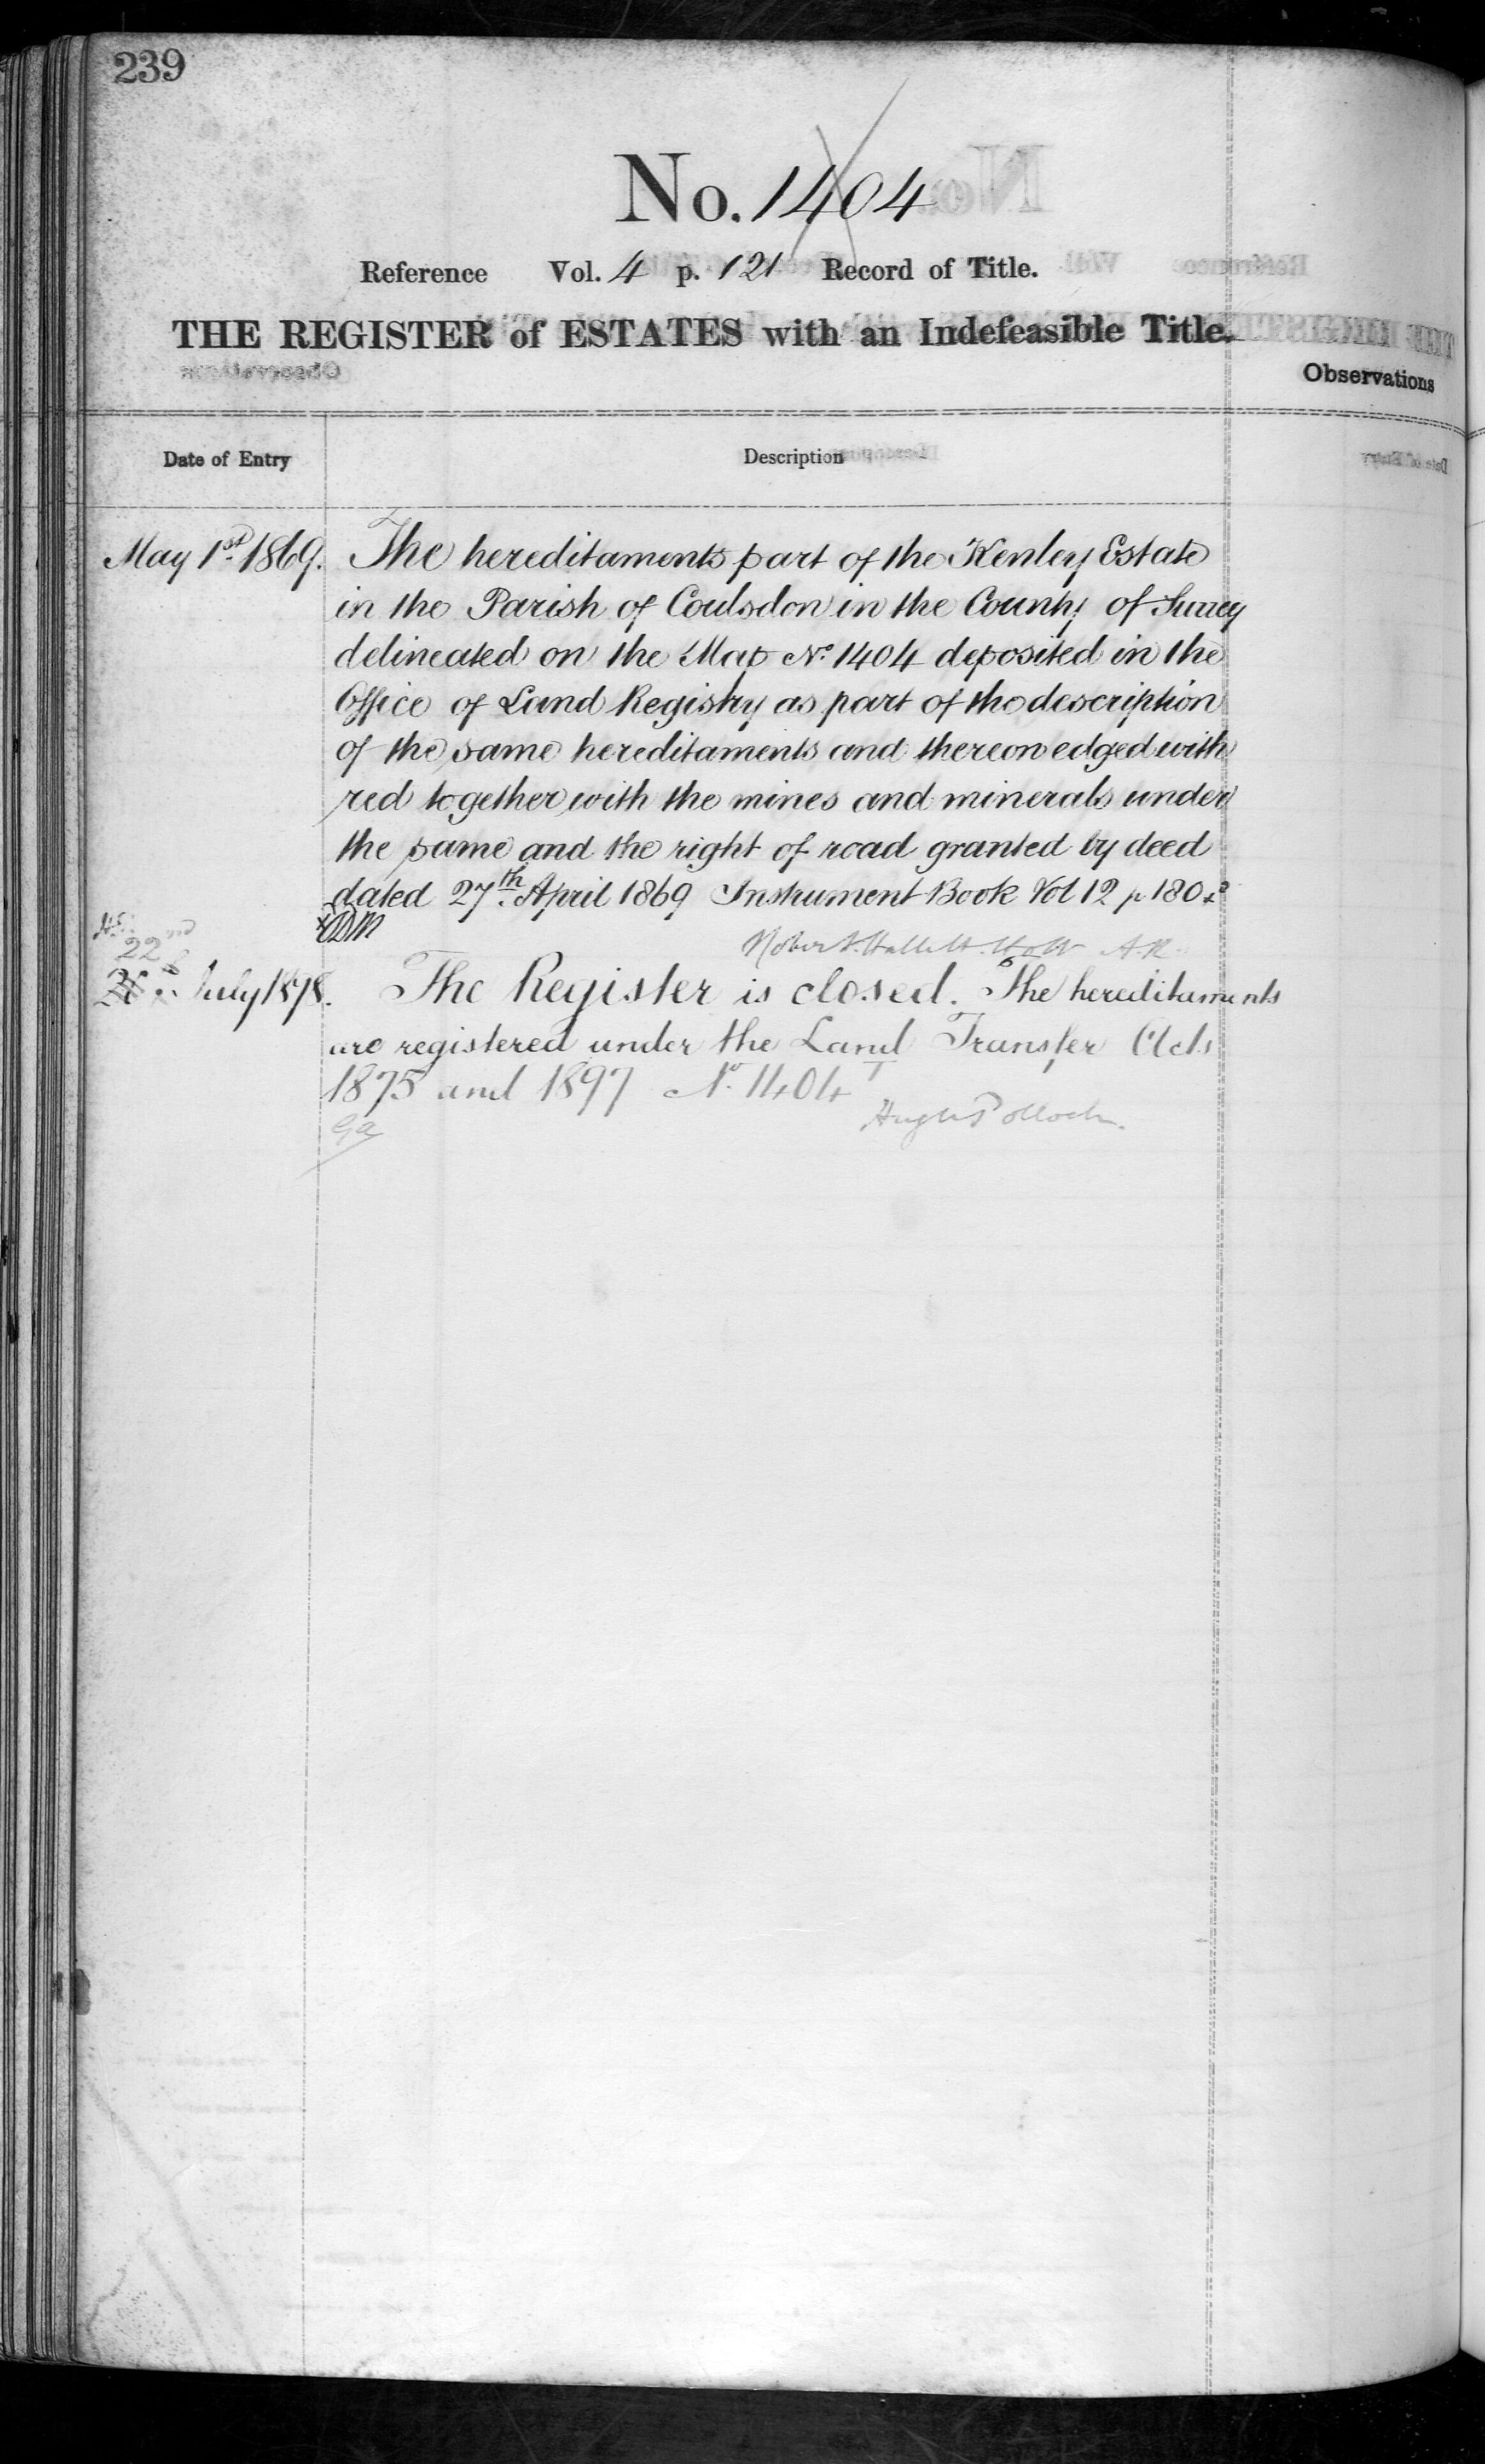 239
No. 1404
Reference Vol. 4 p. 121 Record of Title.
THE REGISTER of ESTATES with an Indefeasible Title.
Observations
Date of Entry Description
May 1st 1869. The hereditaments part of the Kenley Estate
in the Parish of Coulsdon in the County of Surrey
delineated on the Map No. 1404 deposited in the
Office of Land Registry as part of the description
of the same hereditaments and thereon edged with
red together with the mines and minerals under
the same and the right of road granted by deed
dated 27th April 1869 Instrument Book Vol 12 p 180
Robert Hallett Holt A.R.
22nd
July 1898. The Register is closed. The hereditaments
are registered under the Land Transfer Acts
1875 and 1897 No. 1404
Hugh Pollock.